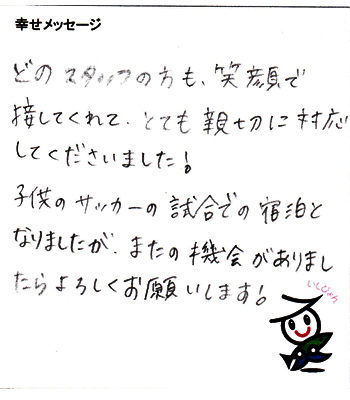 幸せメッセージ
どのスタッフの方も、笑顔で
接してくれて、とても親切に対応
してくださいました!
子供のサッカーの試合での宿泊と
なりましたが、またの機会がありまし
たらよろしくお願いします!